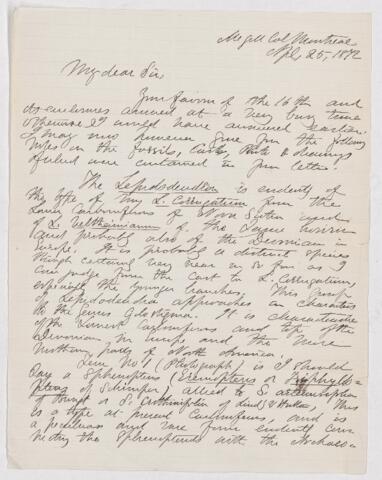 McGill Col. Montreal
Apl. 25, 1872
My dear Sir,
Your favour of the 16th and
its enclosures arrived at a very busy time
otherwise I would have answered earlier.
I may now however give you the following
notes on the fossils, casts, & drawings
of which were contained in your letter.
The Lepidodendron is evidently of
the type of my L. Corrugatum from the
Lower Carboniferous of Nova Scotia and
of L. Veltheimianum of the same horizon
and probably also of the Devonian in
Europe. It is probably a distinct species
though certainly very near in so far as I
can judge from the cast to L. Corrugatum,
especially the younger branches. This group
of Lepidodendra approaches in characters
to the genus Cyclostigma. It is characteristic
of the Lowest Carboniferous and top of the
Devonian in Europe and the more
northern parts of North America.
No 1 (Photograph), is I should
say a Sphenopteris (
of Schimper) allied to S.
of or S. of Lind. & Hutton, This
is a type at present Carboniferous, and is
a peculiar and rare form evidently con
necting the Sphenopterids with the